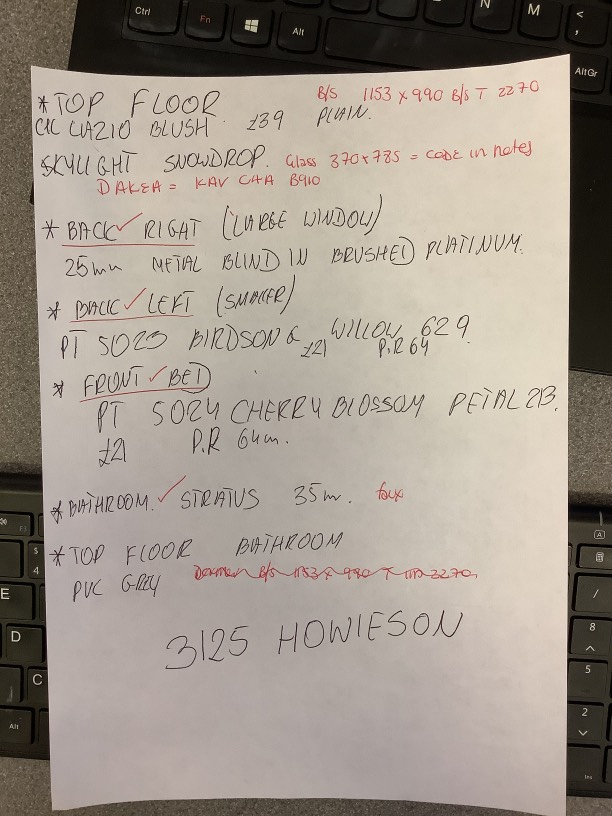 Ctrl Fn Alt N M < ,
AltGr
*TOP FLOOR B/S 1153 x 990 B/S T 2270
LAZIO BLUSH £39 PLAIN.
SKYLIGHT SNOWDROP. Glass 370x785 = CODE in notes
DAKEA = KAV CHA B910
* BACK ✓ RIGHT (LARGE WINDOW)
25mm METAL BLIND IN BRUSHED PLATINUM.
* BACK ✓ LEFT (SMALLER)
PT 5023 BIRDSONG WILLOW 629
£21 P.R 64
* FRONT ✓ BED
PT 5024 CHERRY BLOSSOM PETAL 213.
£21 P.R 64cm.
* BATHROOM. ✓ STRATUS 35m. faux
* TOP FLOOR BATHROOM
PVC GREY B/S 1153 x 990 T 2270
3125 HOWIESON
$ 4
E
D
C
Alt
A
/
8
5
2
Ins